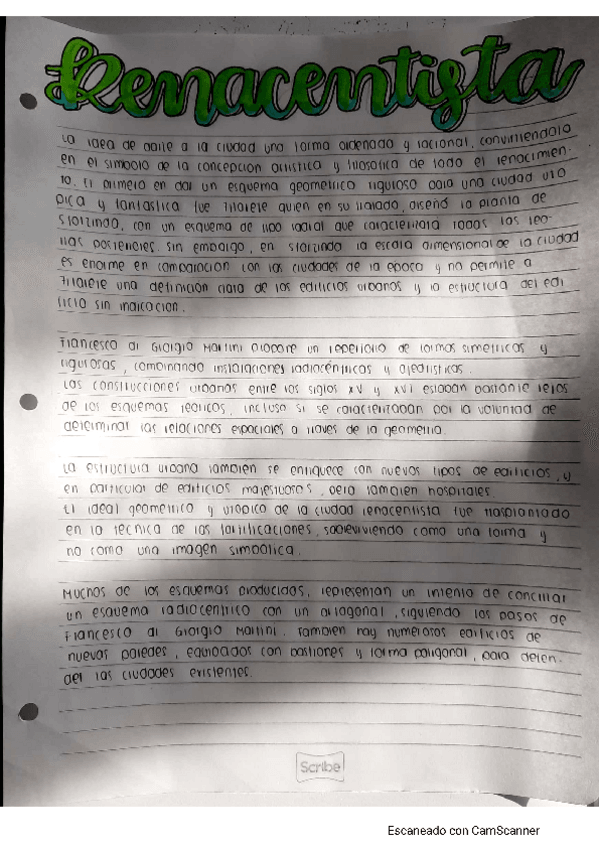 Renacentista
La idea de darle a la ciudad una forma ordenada y racional, convirtiendola
en el simbolo de la concepcion artistica y filosofica de todo el renacimien-
to. El primero en dar un esquema geometrico riguroso para una ciudad uto
pica y fantastica fue Filarete quien en su tratado, diseño la planta de
Sforzinda, con un esquema de tipo radial que caracterizara todas las teo-
rias posteriores. Sin embargo, en Sforzinda la escala dimensional de la ciudad
es enorme en comparacion con las ciudades de la epoca y no permite a
Filarete una definicion clara de los edificios urbanos y la estructura del edi
ficio sin indicacion.
Francesco di Giorgio Martini propone un repertorio de formas simetricas y
rigurosas, combinando instalaciones radiocéntricas y ajedristicas.
Las construcciones urbanas entre los siglos XV y XVI estaban bastante lejos
de los esquemas teoricos, incluso si se caracterizaban por la voluntad de
determinar las relaciones espaciales a traves de la geometria.
La estructura urbana tambien se enriquece con nuevos tipos de edificios, y
en particular de edificios majestuosos, pero tambien hospitales.
El ideal geometrico y utopico de la ciudad renacentista fue trasplantado
en la tecnica de las fortificaciones, sobreviviendo como una forma y
no como una imagen simbolica.
Muchos de los esquemas producidos, representan un intento de conciliar
un esquema radiocentrico con un ortogonal, siguiendo los pasos de
Francesco di Giorgio Martini. Tambien hay numerosos edificios de
nuevas paredes, equipados con bastiones y forma poligonal, para defen-
der las ciudades existentes.
Scribe
Escaneado con CamScanner